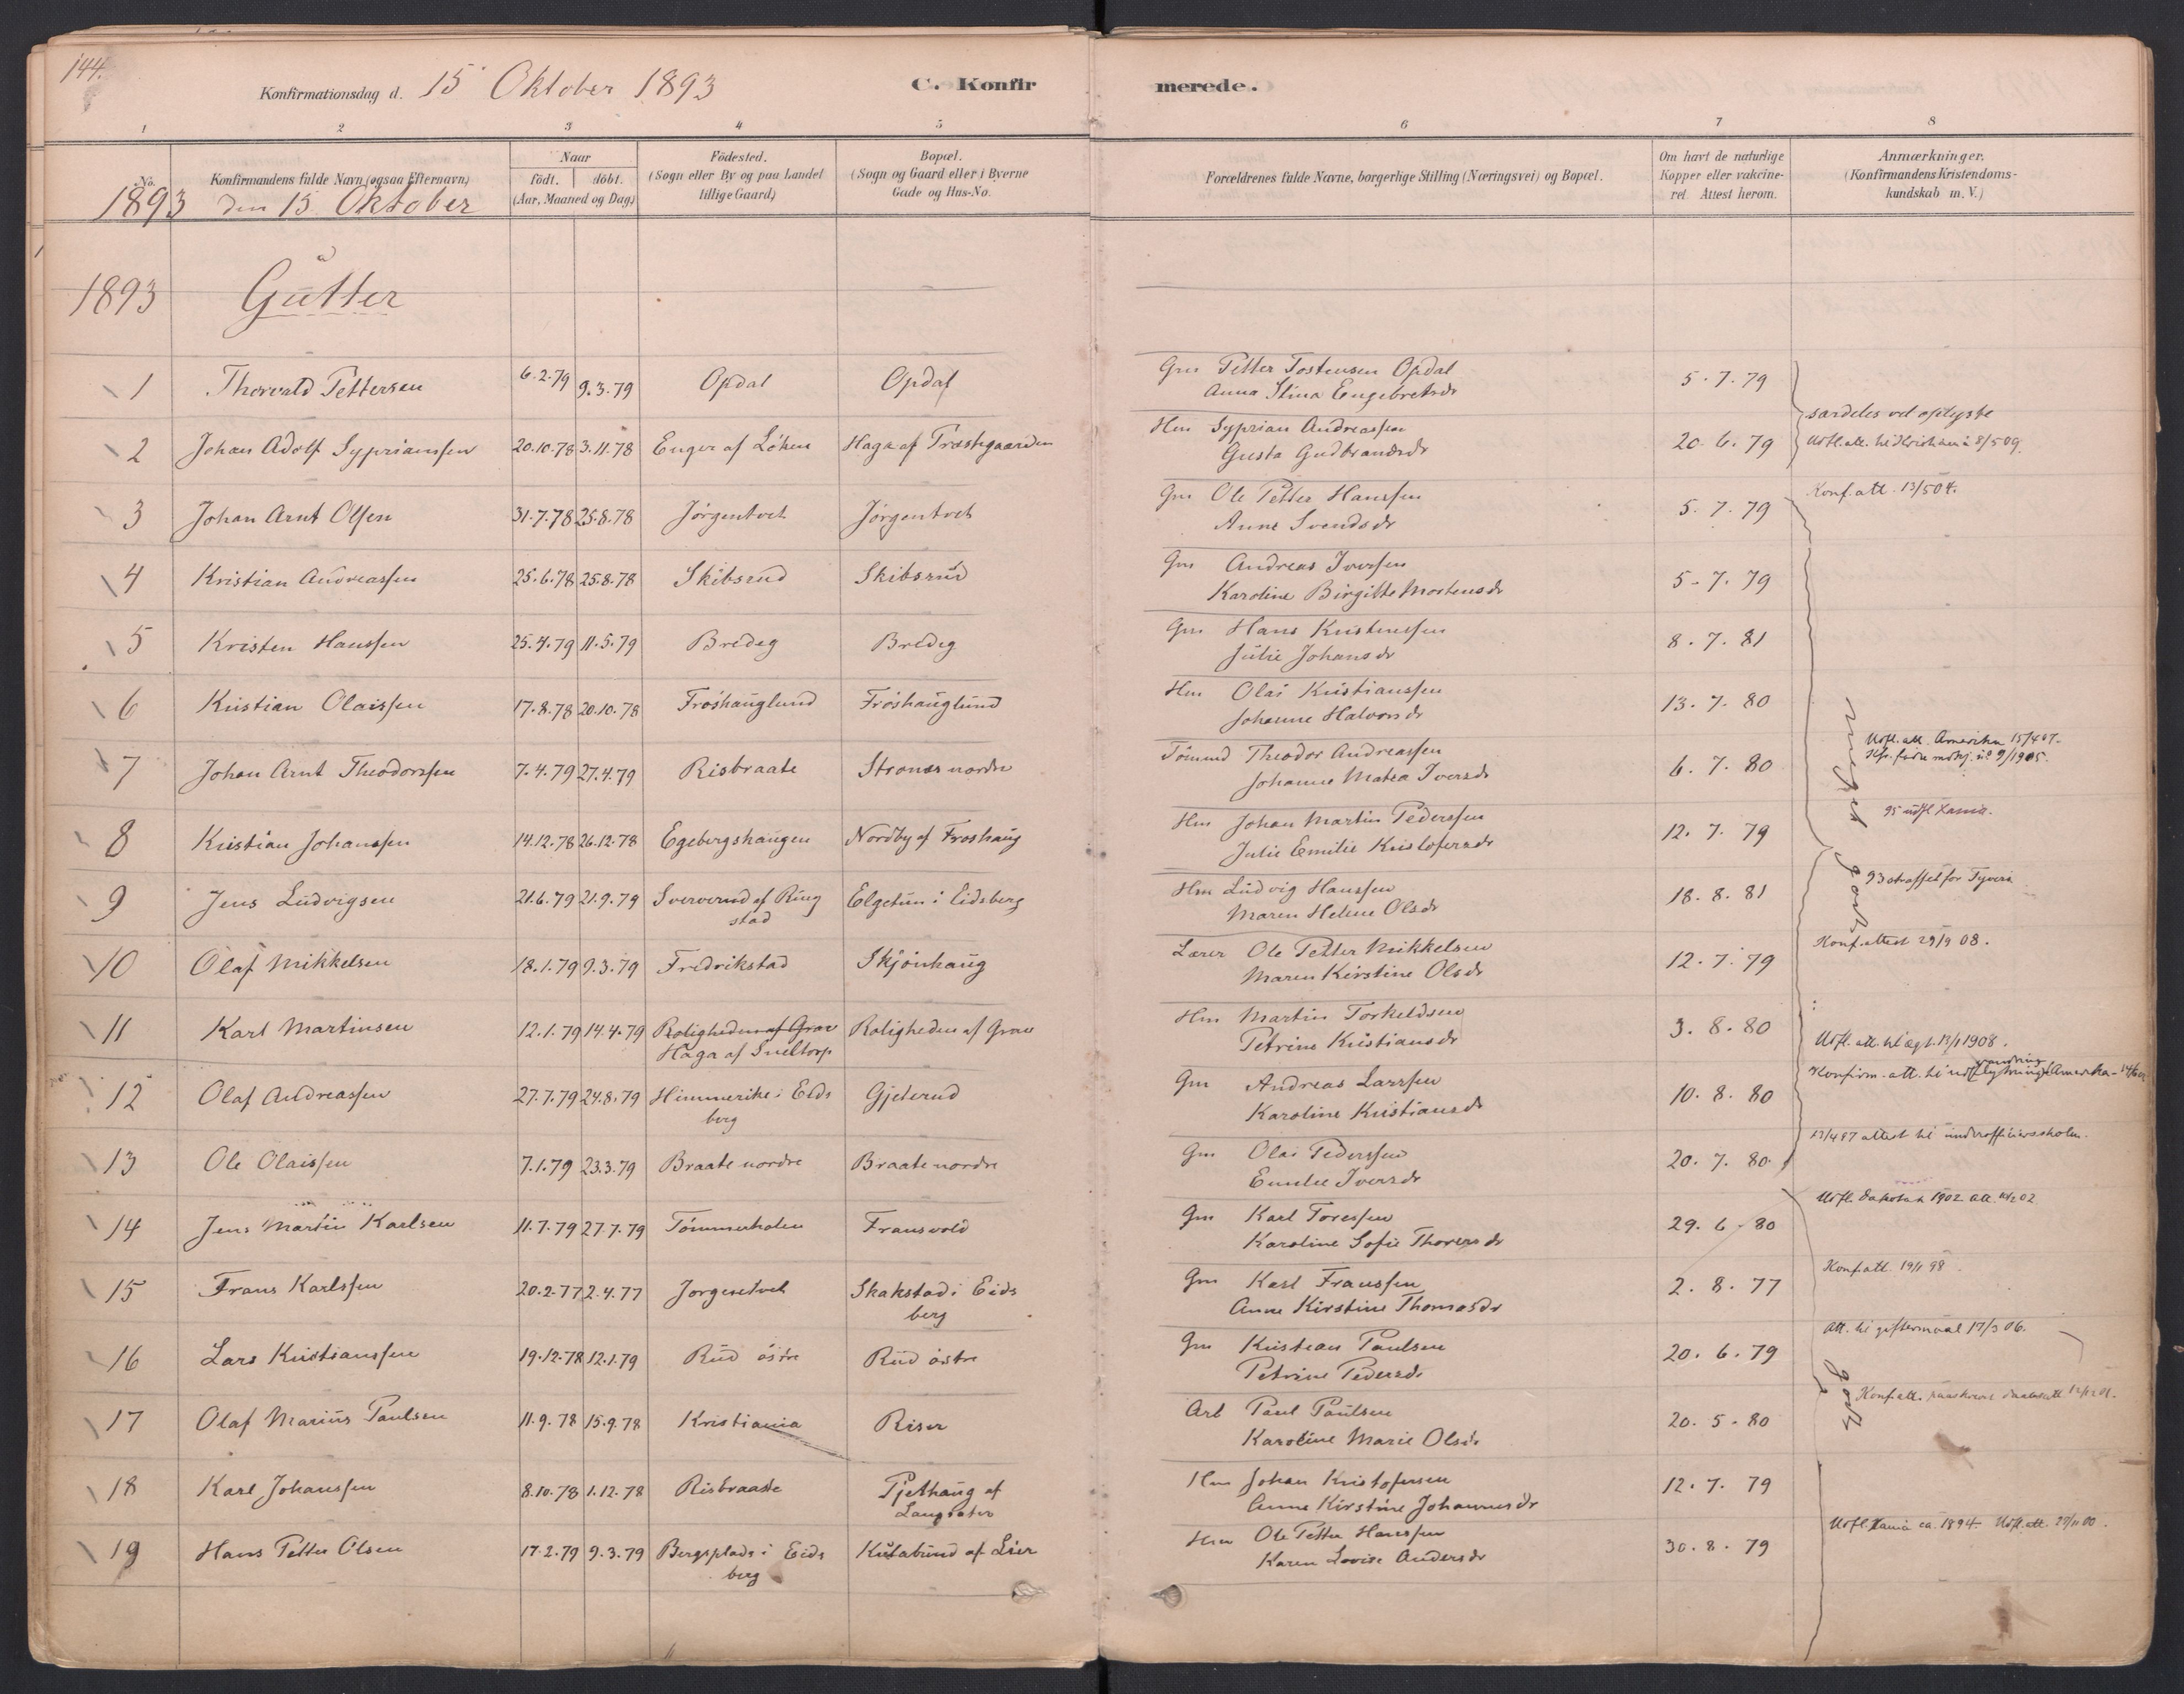 144.
Konfirmationsdag d. 15 Oktober 1893
C. Konfirmerede.
1 2 3 4 5 6 7 8
No. Konfirmandens fulde Navn (ogsaa Efternavn) Naar födt. döbt. (Aar, Maaned og Dag) Födested. (Sogn eller By og paa Landet tillige Gaard) Bopæl. (Sogn og Gaard eller i Byerne Gade og Hus-No. Forældrenes fulde Navne, borgerlige Stilling (Næringsvei) og Bopæl. Om havt de naturlige Kopper eller vakcineret Attest herom. Anmærkninger. (Konfirmandens Kristendomskundskab m. V.)
1893 den 15 Oktober
1893 Gutter
1 Thorvald Pettersen 6.2.79 9.3.79 Opdal Opdal Gm Petter Tostensen Opdal 5.7.79
Anna Stina Engebretsdr
særdeles vel oplyste
2 Johan Adolf Syprianssen 20.10.78 3.11.78 Enger af Löken Haga af Præstegaarden Hm Syprian Andreassen 20.6.79 Udfl. att. til Kristiania 8/5 09.
Gusta Gudbrandsdr
3 Johan Arnt Olsen 31.7.78 25.8.78 Jörgentvet Jörgentvet Gm Ole Petter Hanssen 5.7.79 Konf. att. 13/5 04.
Anne Svendsdr
4 Kristian Andreassen 25.6.78 25.8.78 Skibsrud Skibsrud Gm Andreas Iversen 5.7.79
Karoline Birgitte Mortensdr
5 Kristen Hanssen 25.4.79 11.5.79 Bredeg Bredeg Gm Hans Kristenssen 8.7.81
Julie Johansdr
6 Kristian Olaissen 17.8.78 20.10.78 Fröshauglund Fröshauglund Hm Olai Kristianssen 13.7.80
Johanne Halvorsdr
7 Johan Arnt Theodorssen 7.4.79 27.4.79 Risbraate Stronès nordre Tömmd Theodor Andreassen 6.7.80 Udfl. att. Amerika 15/4 07.
Johanne Matea Iversdr
meget godt
8 Kristian Johanssen 14.12.78 26.12.78 Egebergshaugen Nordby af Froshaug Hm Johan Martin Pederssen 12.7.79 95 udfl. Xania.
Julie Emilie Kristofersdr
9 Jens Ludvigsen 21.6.79 21.9.79 Sververud af Ring Elgetun i Eidsberg Hm Ludvig Hanssen 18.8.81 93 straffet for Tyveri
stad Maren Helene Olsdr
10 Olaf Mikkelsen 18.1.79 9.3.79 Fredrikstad Skjönhaug Lærer Ole Petter Mikkelsen 12.7.79 Konf. attest 29/9 08.
Maren Kirstine Olsdr
11 Karl Martinsen 12.1.79 14.4.79 Roligheden af Grav Roligheden af Grav Hm Martin Torkeldsen 3.8.80 Udfl. att. til ægt. 13/1 1908.
Haga af Sneltorp Petrine Kristiansdr
12 Olaf Andreassen 27.7.79 24.8.79 Himmerike i Eids Gjeterud Gm Andreas Larssen 10.8.80 Konfirm. att. til Amerika
berg Karoline Kristiansdr
13 Ole Olaissen 7.1.79 23.3.79 Braate nordre Braate nordre Gm Olai Pederssen 20.7.80 13/4 97 attest til underofficersskolen.
Emilie Iversdr
14 Jens Martin Karlsen 11.7.79 27.7.79 Tömmerholen Fransvold Gm Karl Toressen 29.6.80 Udfl. Dakota 1902. att.
Karoline Sofie Thoresdr
15 Frans Karlssen 20.2.77 2.4.77 Jorgentvet Skakstad i Eids Gm Karl Franssen 2.8.77 Konf. att. 19/1 98.
berg Anne Kirstine Thomasdr
16 Lars Kristianssen 19.12.78 12.1.79 Rud östre Rud östre Gm Kristian Paulsen 20.6.79 Att. til giftermaal 17/3 06.
Petrine Pedersdr
godt
17 Olaf Marius Paulsen 11.9.78 15.9.78 Kristiania Riser Arb Paul Paulsen 20.5.80 Konf. att.
Karoline Marie Olsdr
18 Karl Johanssen 8.10.78 1.12.78 Risbraate Pjethaug af Hm Johan Kristofersen 12.7.79
Langsæter Anne Kirstine Johannesdr
19 Hans Petter Olsen 17.2.79 9.3.79 Bergsplads i Eids Kutabund af Lier Hm Ole Petter Hanssen 30.8.79 Udfl. Xania ca. 1894. Udfl. att. 29/11 00.
berg Karen Lovise Andersdr